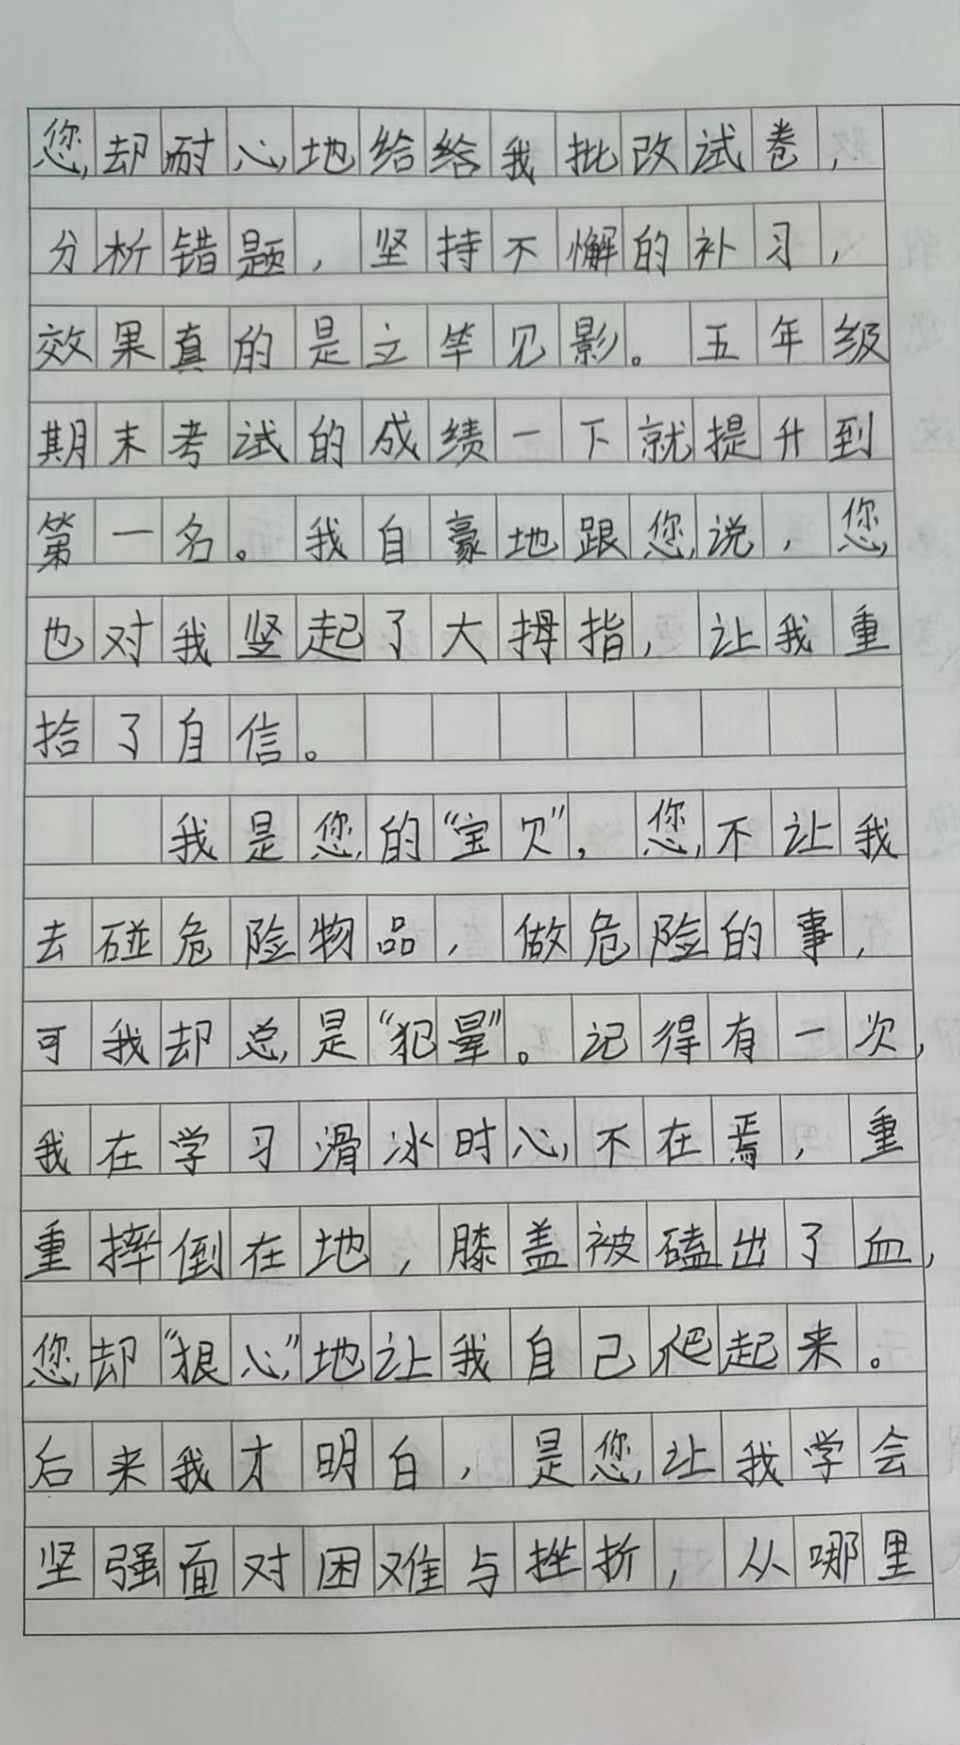 您却耐心地给给我批改试卷，
分析错题，坚持不懈的补习，
效果真的是立竿见影。五年级
期末考试的成绩一下就提升到
第一名。我自豪地跟您说，您
也对我竖起了大拇指，让我重
拾了自信。
我是您的“宝贝”，您不让我
去碰危险物品，做危险的事，
可我却总是“犯晕”。记得有一次，
我在学习滑冰时心不在焉，重
重摔倒在地，膝盖被磕出了血，
您却“狠心”地让我自己爬起来。
后来我才明白，是您让我学会
坚强面对困难与挫折，从哪里